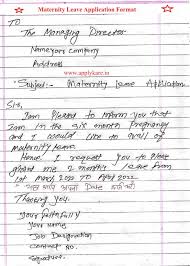 Maternity Leave Application Format
TO
The Managing Director
Name your company
Address
www.applykare.in
Subject:- Maternity leave Application
Sir,
I am Pleased to inform you that
I am in the six month Pregnancy
and I would like to avail of
maternity leave.
Hence I request you to Please
grant me 2 months leave from
1st March 2022 to April 2022.
Thanking You.
Your faithfully
Your name
Job Designation
Contact No.
Signature.